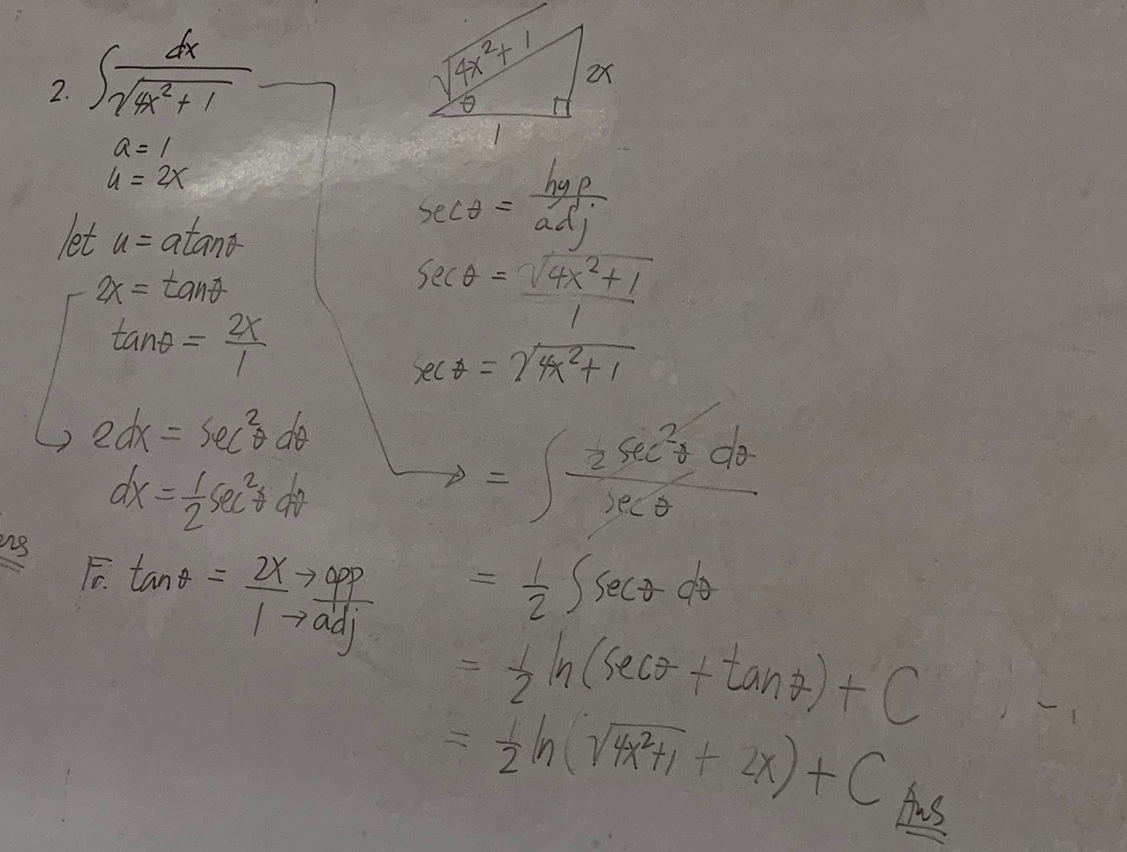 2. ∫ dx / √(4x² + 1)
a = 1
u = 2x
let u = a tanθ
2x = tanθ
tanθ = 2x / 1
2dx = sec²θ dθ
dx = 1/2 sec²θ dθ
Fr. tanθ = 2x → opp / 1 → adj
√(4x² + 1)
2x
θ
1
secθ = hyp / adj
secθ = √(4x² + 1) / 1
secθ = √(4x² + 1)
= ∫ 1/2 sec²θ dθ / secθ
= 1/2 ∫ secθ dθ
= 1/2 ln(secθ + tanθ) + C
= 1/2 ln(√(4x²+1) + 2x) + C Ans